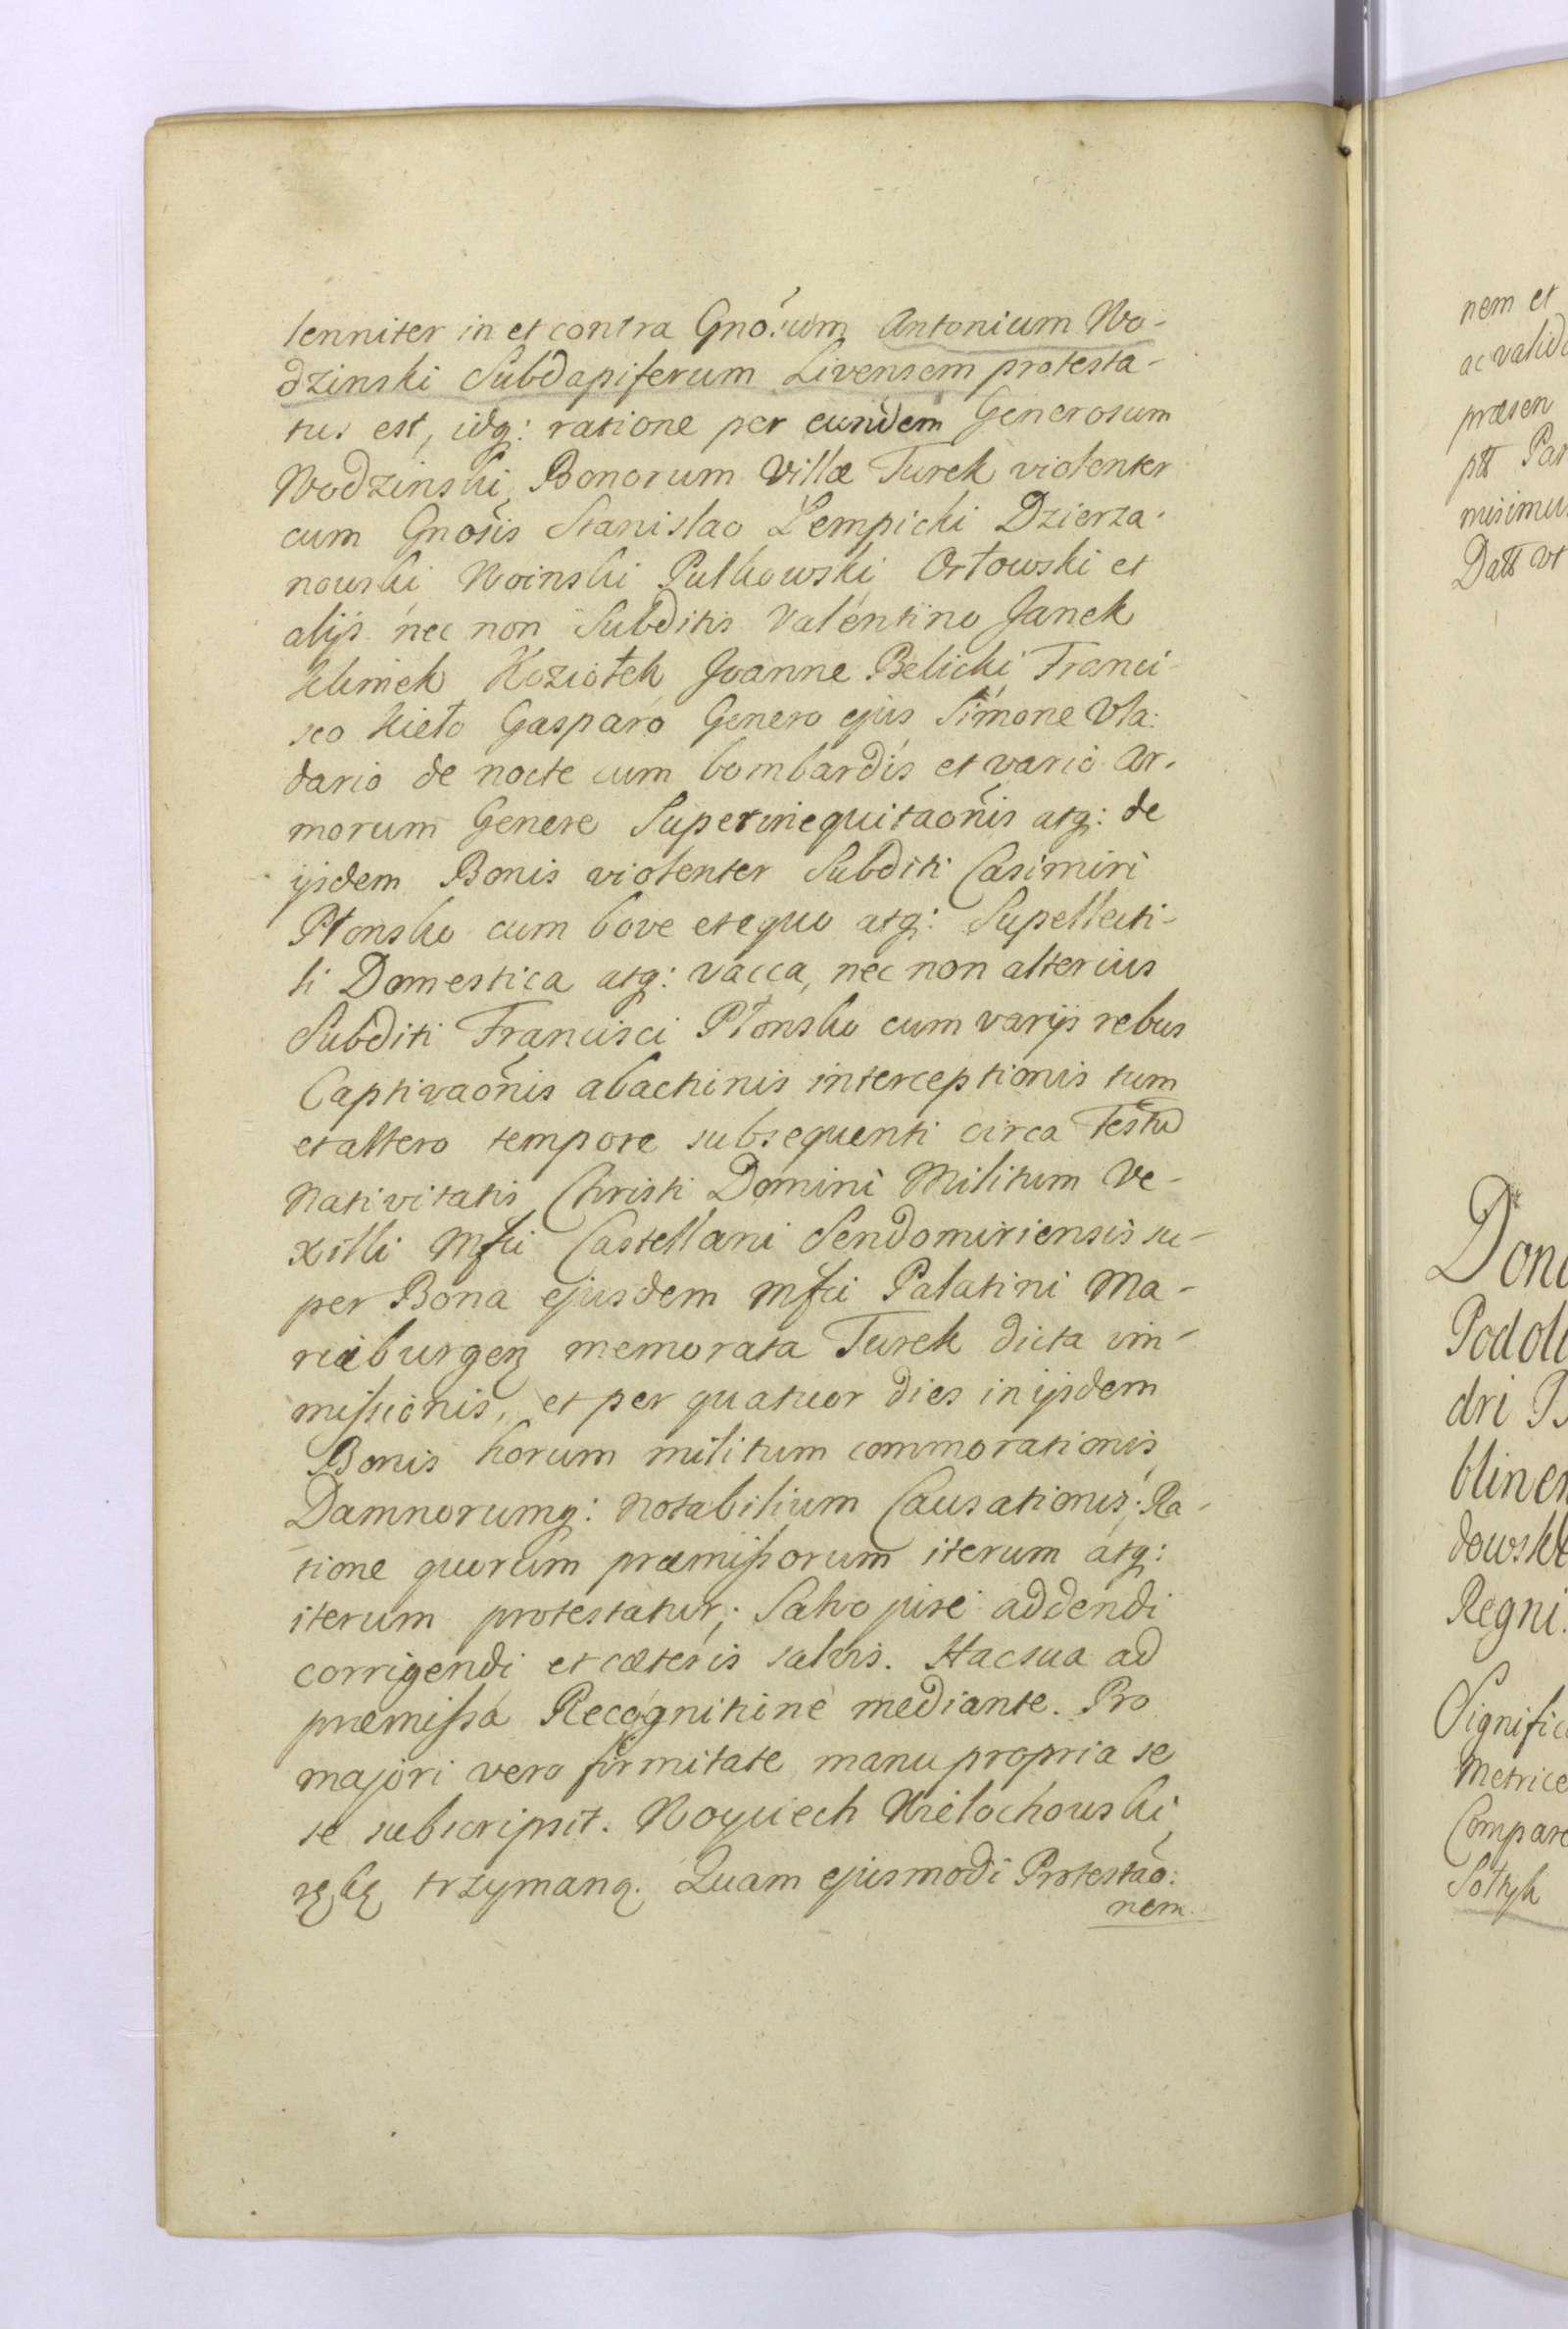 lenniter in et contra Gnosum Antonium Wo-
dzinski Subdapiferum Livensem protesta-
tus est, idq: ratione per eundem Generosum
Wodzinski, Bonorum Villæ Turek violenter
cum Gnosis Stanislao Lempicki Dzierza-
nowski Woinski Pulkowski Orłowski et
alijs nec non Subditis Valentino Janek
Klimek Koziołek Joanne Belicki Franci-
sco Kieło Gasparo Genero ejus Simone Vla:
dario de nocte cum bombardis et vario Ar-
morum Genere Superinequitaonis atq: de
ijsdem Bonis violenter Subditi Casimiri
Płonsko cum bove et equo atq: Supellecti-
li Domestica atq: vacca, nec non alterius
Subditi Francisci Płonsko cum varijs rebus
Captivaonis abactinis interceptionis tum
et altero tempore subsequenti circa Festũ
Nativitatis Christi Domini Militum Ve-
xilli Mfci Castellani Sendomiriensis su-
per Bona ejusdem Mfci Palatini Ma-
riæburgen memorata Turek dicta im-
missionis, et per quatuor dies in ijsdem
Bonis horum militum commorationis
Damnorumq: notabilium Causationis; Ra-
tione quorum præmissorum iterum atq:
iterum protestatur; Salvo jure addendi
corrigendi et cæteris salvis. Hac sua ad
præmissa Recognitine mediante. Pro
majori vero firmitate manu propria se
se subscripsit. Woyciech Wielochowski
ręką trzymaną. Quam ejusmodi Protestão:
nem.
nem et
ac valid
præsen
ptt Par
misimus
Datt vt
Dona
Podoli
dri
blinen
dowsk
Regni.
Signific
Metrice
Compare
Sołtyk